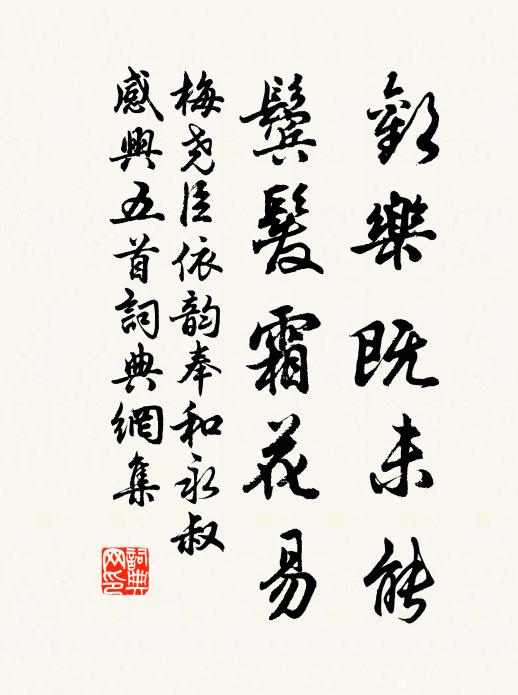 歡樂既未能
鬢髮霜花易
梅堯臣依韵奉和永叔
感興五首詞典網集
詞典网印